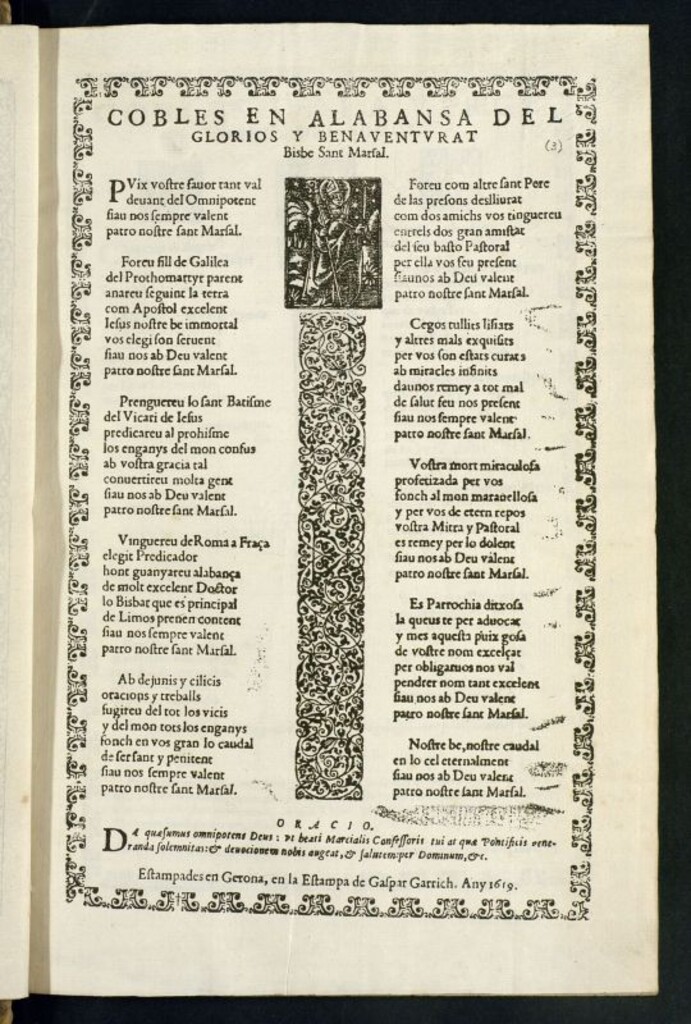 COBLES EN ALABANSA DEL
GLORIOS Y BENAVENTVRAT
Bisbe Sant Marsal.
(3)
PVix vostre fauor tant val
deuant del Omnipotent
siau nos sempre valent
patro nostre sant Marsal.
Foreu fill de Galilea
del Prothomartyr parent
anareu seguint la terra
com Apostol excelent
Iesus nostre be immortal
vos elegi son seruent
siau nos ab Deu valent
patro nostre sant Marsal.
Prenguereu lo sant Batisme
del Vicari de Iesus
predicareu al prohisme
los enganys del mon confus
ab vostra gracia tal
conuertireu molta gent
siau nos ab Deu valent
patro nostre sant Marsal.
Vinguereu de Roma a Fraça
elegit Predicador
hont guanyareu alabança
de molt excelent Doctor
lo Bisbat que es principal
de Limos prenen content
siau nos sempre valent
patro nostre sant Marsal.
Ab dejunis y cilicis
oracions y treballs
fugireu del tot los vicis
y del mon tots los enganys
fonch en vos gran lo caudal
de ser sant y penitent
siau nos sempre valent
patro nostre sant Marsal.
Foreu com altre sant Pere
de las presons deslliurat
com dos amichs vos tinguereu
entrels dos gran amistat
del seu basto Pastoral
per ella vos feu present
siaunos ab Deu valent
patro nostre sant Marsal.
Cegos tullits lisiats
y altres mals exquisits
per vos son estats curats
ab miracles infinits
daunos remey a tot mal
de salut feu nos present
siau nos sempre valent
patro nostre sant Marsal.
Vostra mort miraculosa
profetizada per vos
fonch al mon marauellosa
y per vos de etern repos
vostra Mitra y Pastoral
es remey per lo dolent
siau nos ab Deu valent
patro nostre sant Marsal.
Es Parrochia ditxosa
la queus te per aduocat
y mes aquesta puix gosa
de vostre nom excelçat
per obligaruos nos val
pendrer nom tant excelent
siau nos ab Deu valent
patro nostre sant Marsal.
Nostre be, nostre caudal
en lo cel eternalment
siau nos ab Deu valent
patro nostre sant Marsal.
ORACIO.
DA quæsumus omnipotens Deus: vt beati Marcialis Confessoris tui at quæ Pontificis vene-
randa solemnitas: & deuotionem nobis augeat, & salutem: per Dominum, &c.
Estampades en Gerona, en la Estampa de Gaspar Garrich. Any 1619.